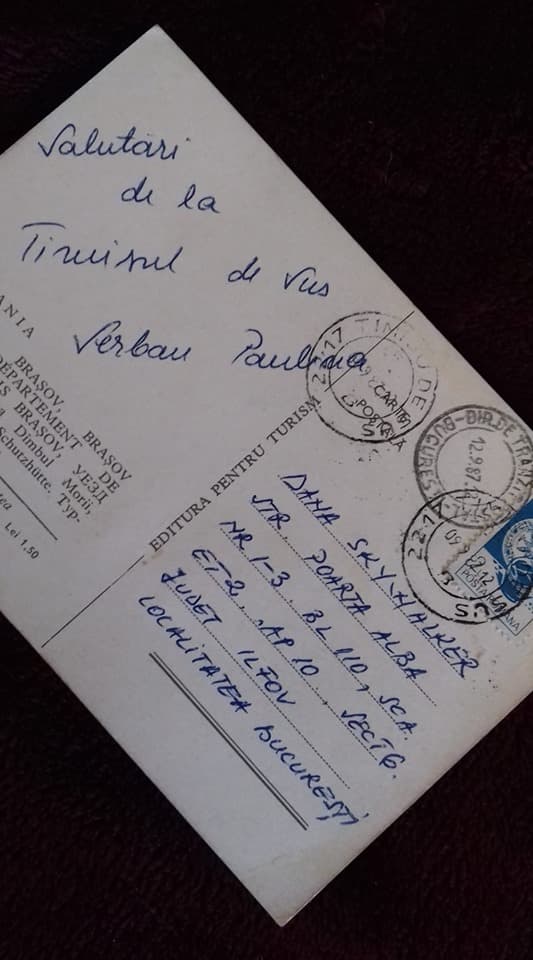 Salutări
de la
Timisul de Sus
Serban Paulina
ANIA
BRAȘOV, BRAȘOV
DÉPARTEMENT DE
S BRAȘOV, УЕЗД
a Dimbul Morii,
Schutzhütte. Typ.
Lei 1,50
EDITURA PENTRU TURISM
22.17 TIMIȘU DE
CARTARE
POȘTALĂ
DIR. DE TRANZIT
BUCUREȘ
12.9.87
22.17
SU
POSTA ROMANA
DANA SKYWALKER
STR. POARTA ALBA
NR 1-3, BL 110, SCA.
ET-2, AP 10, SECT 6.
JUDET ILFOV
LOCALITATEA BUCUREȘTI